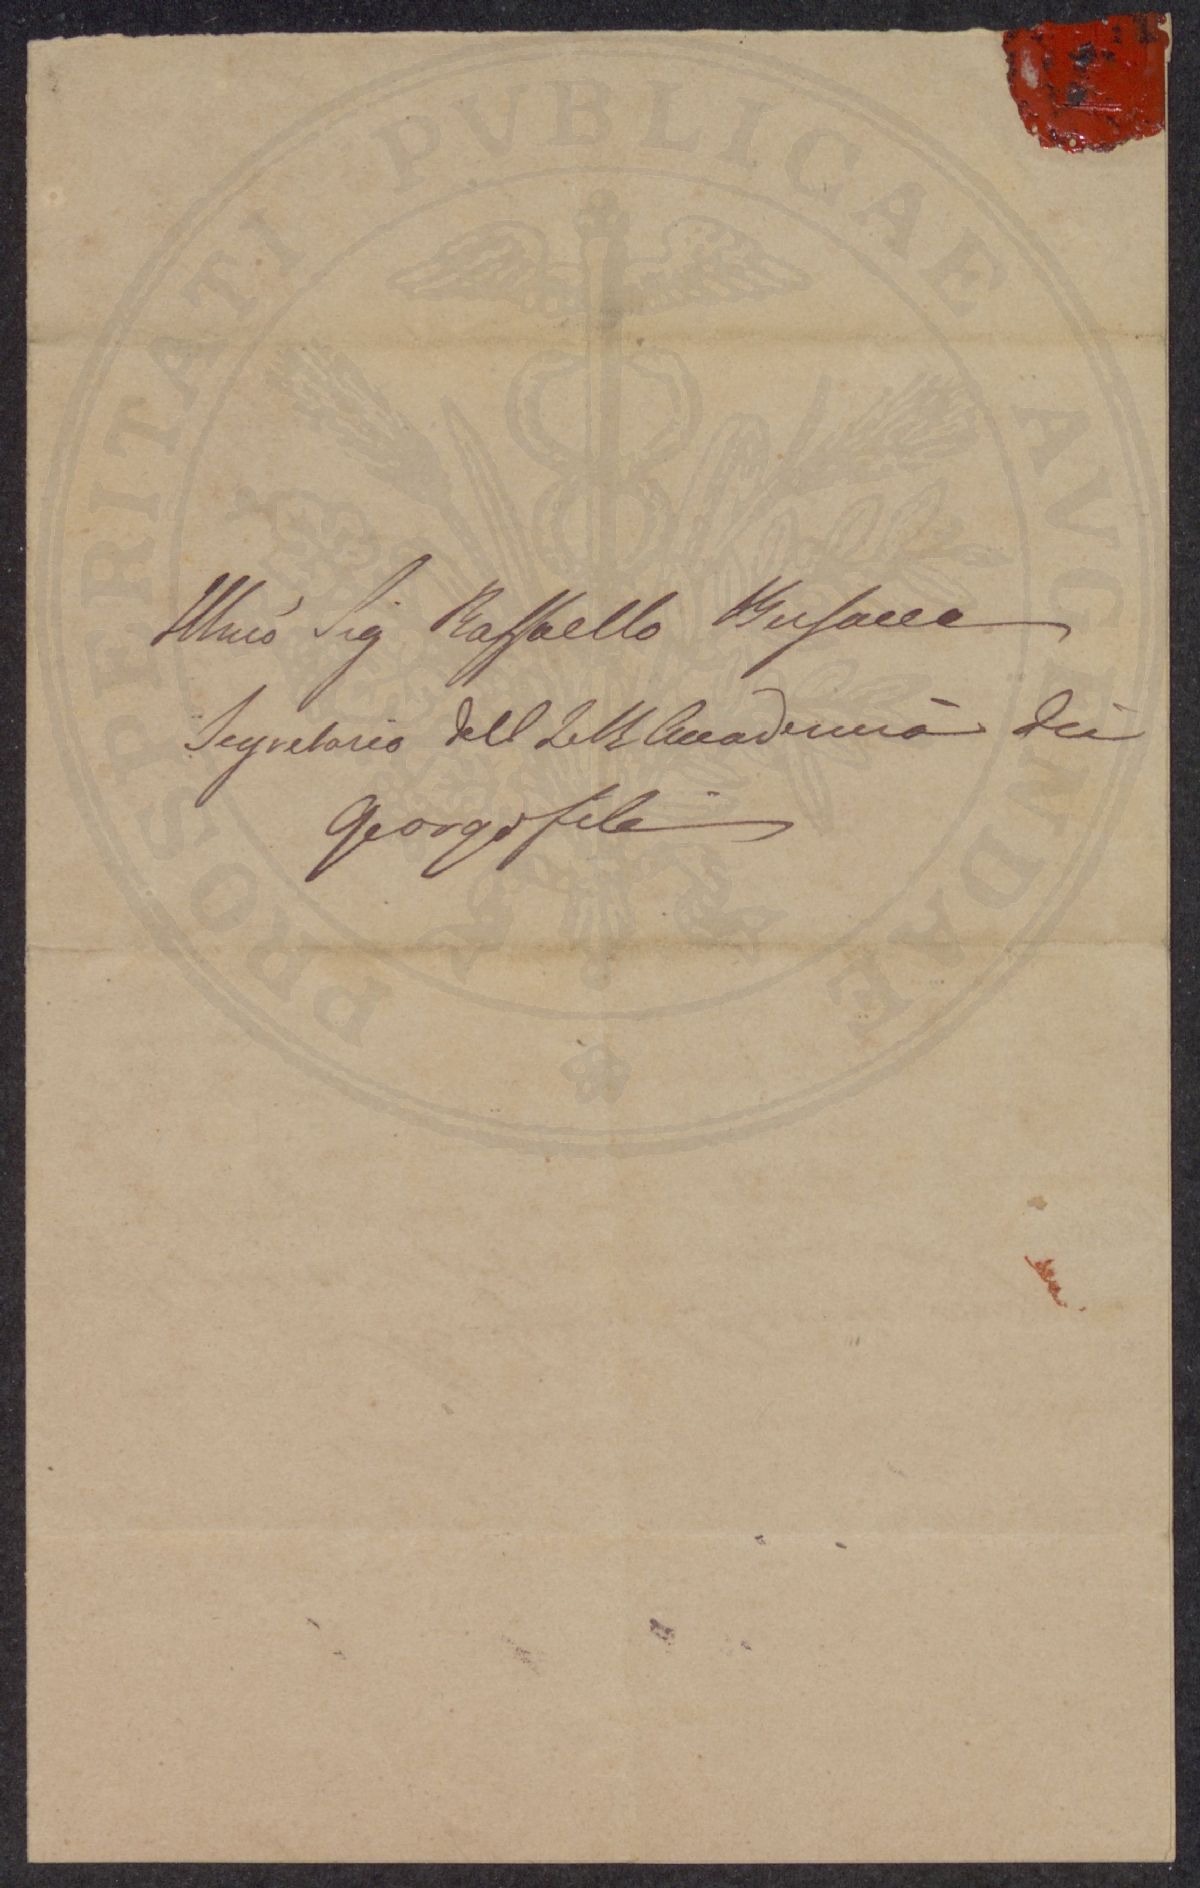 PROSPERITATI PVBLICAE AVGENDAE
Illmo Sig Raffaello Busacca
Segretario dell I e R Accademia dei
Georgofili